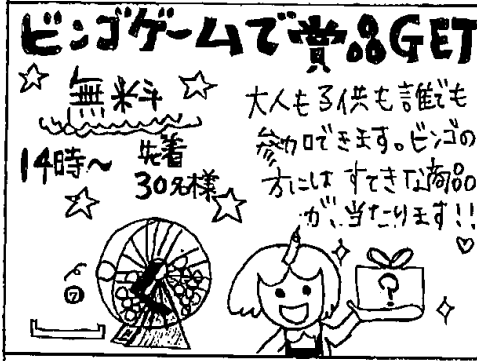 ビンゴゲームで賞品GET
無料
14時～ 先着
30名様
大人も子供も誰でも
参加できます。ビンゴの
方にはすてきな商品
が、当たります!!
⑦
?